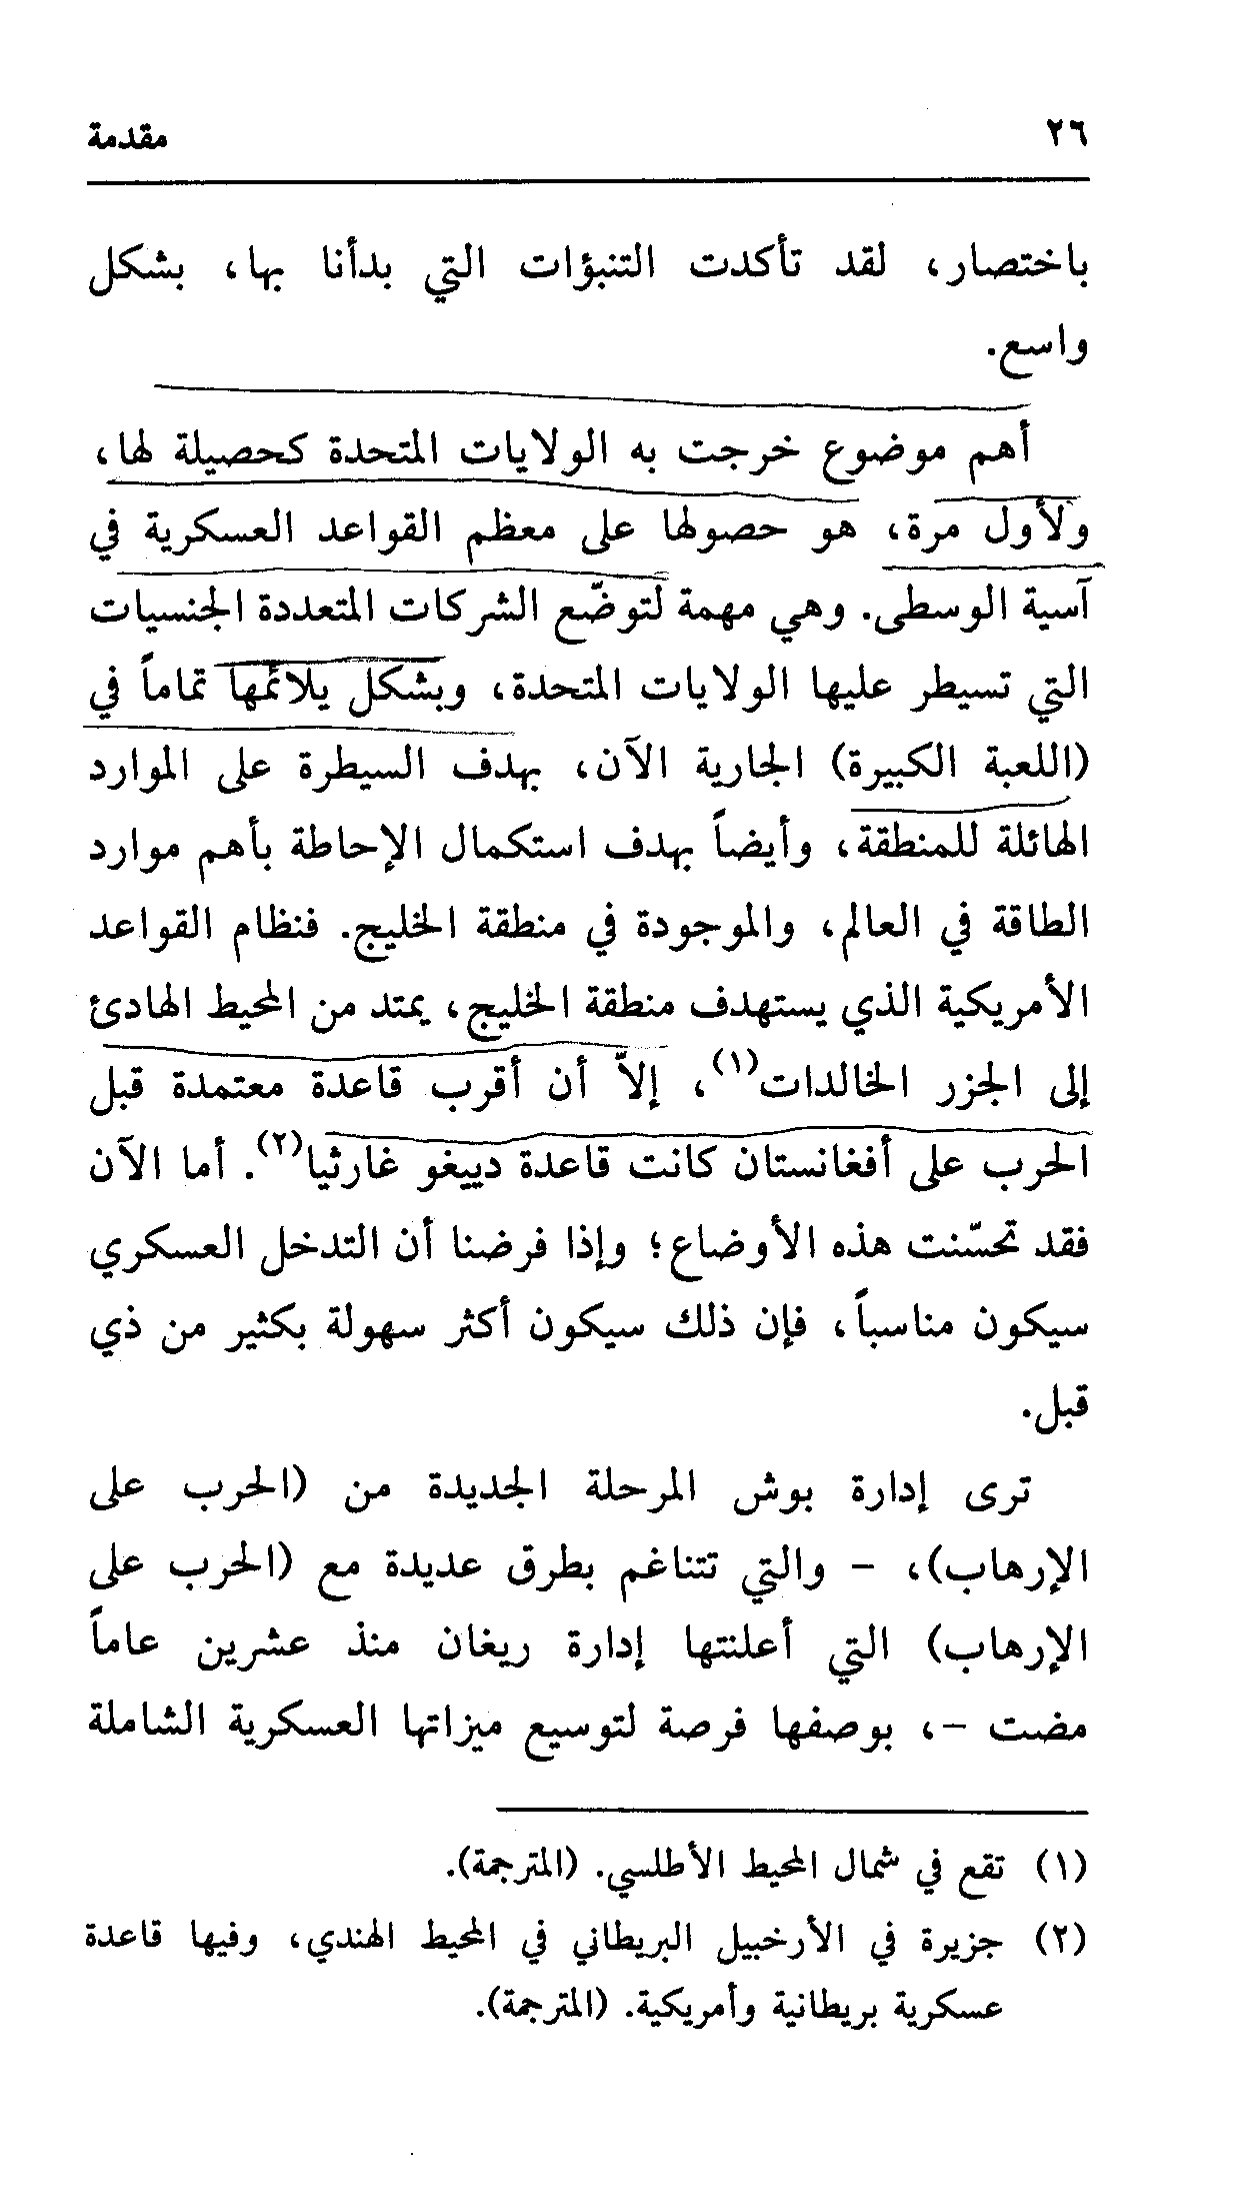 ٢٦ مقدمة
باختصار، لقد تأكدت التنبؤات التي بدأنا بها، بشكل
واسع.
أهم موضوع خرجت به الولايات المتحدة كحصيلة لها،
ولأول مرة، هو حصولها على معظم القواعد العسكرية في
آسية الوسطى. وهي مهمة لتوضّع الشركات المتعددة الجنسيات
التي تسيطر عليها الولايات المتحدة، وبشكل يلائمها تماماً في
(اللعبة الكبيرة) الجارية الآن، بهدف السيطرة على الموارد
الهائلة للمنطقة، وأيضاً بهدف استكمال الإحاطة بأهم موارد
الطاقة في العالم، والموجودة في منطقة الخليج. فنظام القواعد
الأمريكية الذي يستهدف منطقة الخليج، يمتد من المحيط الهادئ
إلى الجزر الخالدات(١)، إلاّ أن أقرب قاعدة معتمدة قبل
الحرب على أفغانستان كانت قاعدة دييغو غارثيا(٢). أما الآن
فقد تحسّنت هذه الأوضاع؛ وإذا فرضنا أن التدخل العسكري
سيكون مناسباً، فإن ذلك سيكون أكثر سهولة بكثير من ذي
قبل.
ترى إدارة بوش المرحلة الجديدة من (الحرب على
الإرهاب)، - والتي تتناغم بطرق عديدة مع (الحرب على
الإرهاب) التي أعلنتها إدارة ريغان منذ عشرين عاماً
مضت -، بوصفها فرصة لتوسيع ميزاتها العسكرية الشاملة
(١) تقع في شمال المحيط الأطلسي. (المترجمة).
(٢) جزيرة في الأرخبيل البريطاني في المحيط الهندي، وفيها قاعدة
عسكرية بريطانية وأمريكية. (المترجمة).